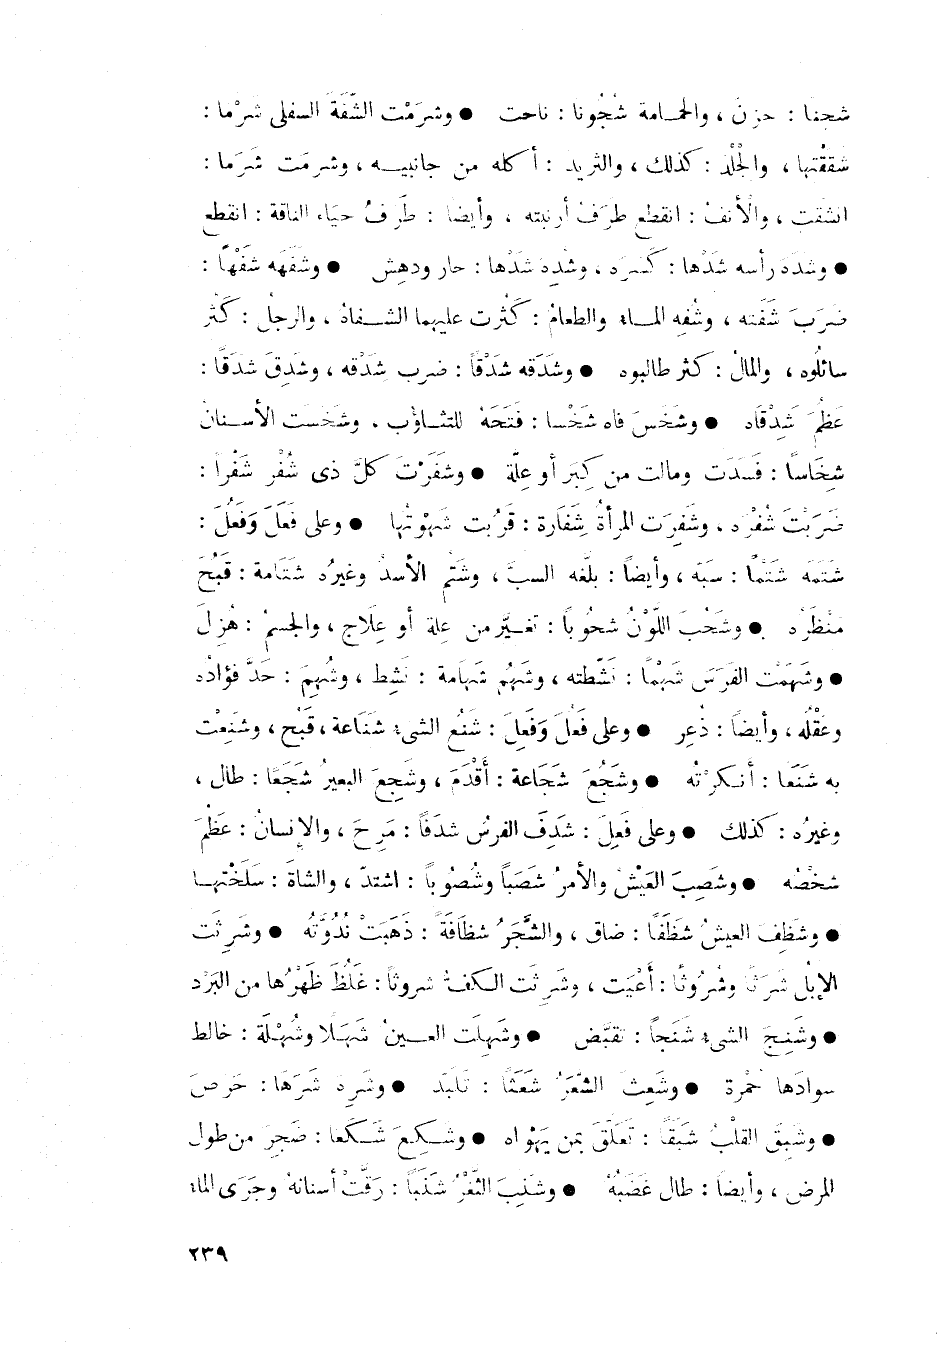 شجنا : حزِنَ ، والحمامة شُجُونا : ناحت ● وشرَمْت الشَّفَةَ السفلى شَرْما :
شققْتها ، والْجُلْدَ : كذلك ، والثريدَ : أكله من جانبيه ، وشرِمَت شَرَما :
انشقت ، والأنفُ : انقطع طَرَفُ أرنبته ، وأيضا : طَرفُ حيَاء الناقة : انقطع
● وشَدَه رأسه شَدْها : كَسَره ، وشُدِهَ شَدْها : حار ودهِش ● وشَفَهَه شَفْهًا :
ضرَبَ شَفَته ، وشُفِه الماء والطعامُ : كَثُرت عليهما الشفاهُ ، والرجلُ : كَثُر
سائلُوه ، والمالُ : كثر طالبوه ● وشَدَقه شَدْقاً : ضرب شِدْقه ، وشَدِقَ شَدَقًا :
عَظُمَ شِدْقَاه ● وشَخَسَ فاه شَخْسا : فَتَحَهُ للتثاؤب ، وشَخَست الأسنانُ
شِخَاسًا : فَسَدَت ومالت من كِبَر أو عِلّة ● وشَفَرْتَ كلَّ ذى شُفْر شَفْراً :
ضَرَبْتَ شُفْرَه ، وشَفِرَت المرأةُ شَفَارة : قرُبت شَهْوتُها ● وعلى فَعَلَ وَفَعُلَ :
شَتَمَه شَتْمًا : سَبَه ، وأيضاً : بلَّغه السبَّ ، وشَتُم الأسدُ وغيرُه شَتَامة : قَبُحَ
مَنْظَرُه ● وشَحُبَ اللّوْنُ شحُوباً : تغيَّر من عِلة أو عِلَاج ، والجسمُ : هُزِلَ
● وشَهَمْت الفَرَسَ شَهْمًا : نَشَّطته ، وشَهُم شَهامة : نَشِط ، وشُهِمَ : حَدَّ فؤادُه
وعَقْلُه ، وأيضاً : ذُعِر ● وعلى فَعُلَ وَفَعِلَ : شَنُع الشىء شَنَاعة ، قَبُح ، وشَنِعْت
به شَنَعا : أنكرْتُه ● وشَجُعَ شَجَاعة : أَقْدَمَ ، وشَجِعَ البعيرُ شَجَعًا : طال ،
وغيرُه : كذلك ● وعلى فَعِلَ : شَدِفَ الفرسُ شدَفاً : مَرِحَ ، والإنسانُ : عَظُمَ
شخْصُه ● وشَصِبَ العَيْشُ والأمرُ شَصَباً وشُصُوباً : اشتدّ ، والشاةَ : سَلَخْتها
● وشَظِف العيشُ شَظَفًا : ضاق ، والشَّجَرُ شظَافَةً : ذَهَبَتْ نُدُوَّتُه ● وشَرِثَت
الإبُل شَرَثًا وشُرُوثًا : أَعْيَت ، وشَرِثَت الكفُّ شروثاً : غَلُظَ ظَهْرُها من البَرْد
● وشَنِجَ الشىء شَنَجاً : تقبَّض ● وشَهِلَت العينُ شَهَلًا وشُهْلَة : خالط
سوادَها حُمْرة ● وشَعِثَ الشَّعَرُ شَعَثًا : تَلَبَّد ● وشَرِهَ شَرَها : حَرَصَ
● وشَبِقَ القلبُ شَبَقًا : تَعَلَّقَ بمن يَهْواه ● وشَكِعَ شَكَعا : ضَجِرَ من طول
المرض ، وأيضاً : طال غَضَبُهُ ● وشَنِبَ الثَّغْرُ شَنَباً : رَقَّتْ أسنانهُ وجَرَى الماء
٢٣٩